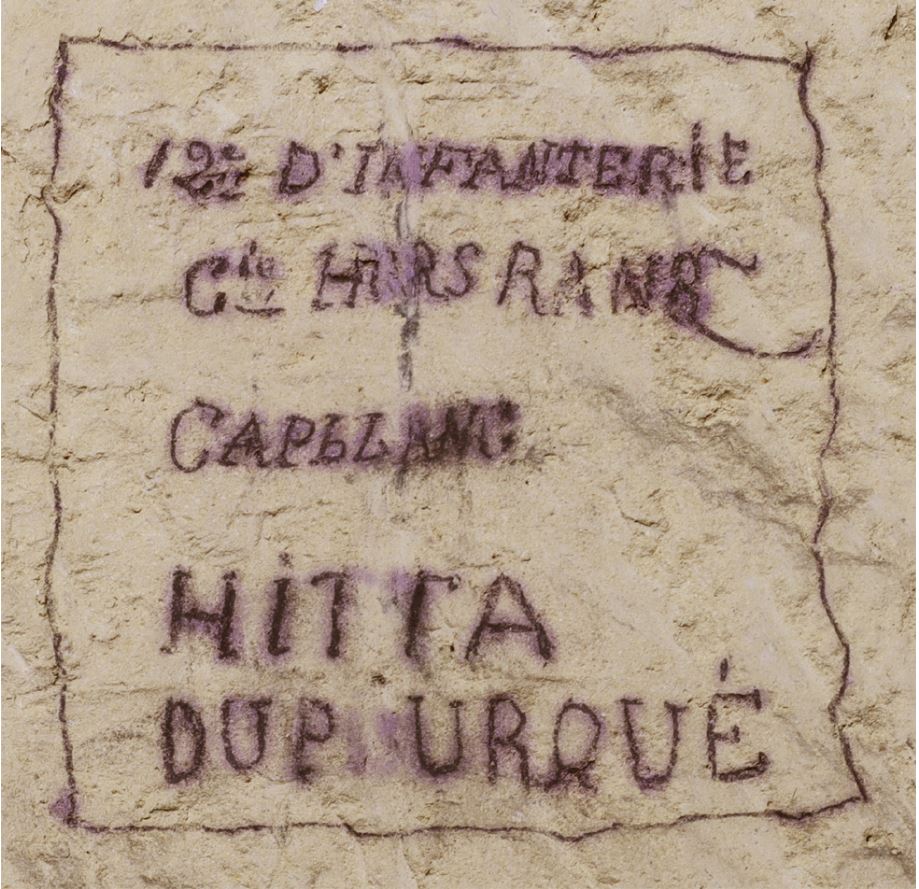 12e D'INFANTERiE
Cie HORS RANG
CAPbLANC
HiTTA
DUPOURQUÉ